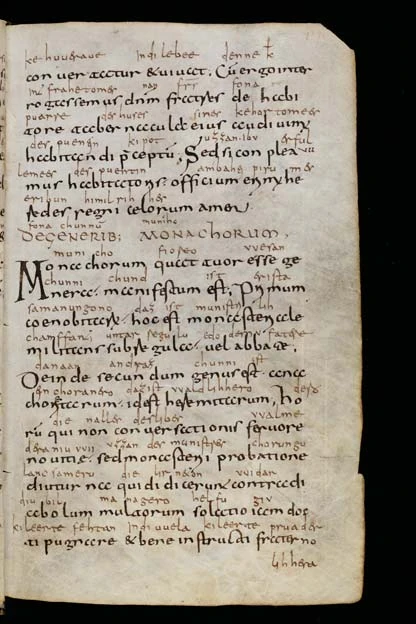 kehuuerave indi lebee denne k
con uertatur & uiuat; Cum ergo inter
frahetomer fona
rogassemus dnm fratres de habi
puarre des huses sines kehortomees
tatore tabernaculi eius audiuimus
des puentin kipot uzzan ibu erful
habitandi p̄ceptū, Sed si con plea
lemees des puentin ambahti piru mes
mus habitatoris officium erimus he
eribun himilrihhes
redes regni celorum amen
fona chunnū municho
DE GENERIB; MONACHORUM,
municho fioreo uuesan
Monachorum quattuor esse ge
chunni chund ist erista
nera: manifestum est, Primum
samanungono daz ist munistrilih
coenobitarū, hoc est monasteriale
chamffanti untar regulu edo demu fatere
militans sub regula: uel abbate,
danaan andraz chunni ist
Deinde secundum genus est anac
einchoranero daz ist uualdlihhero deso
horitarum: id est heremitarum, ho
die nalles des liber uualme
rū qui non conuersationis feruore
dera niuuui uzzan des munistres chorungu
nouitie: sed monasterii probatione
lancsameru die lirneen uuidar
diuturna qui didicerunt contra di
diubil managero helfu giu
abolum multorum solatio iam doc
kileerte fehtan indi uuela kileerte pruader
ti pugnare & bene instructi frater no
lihhera